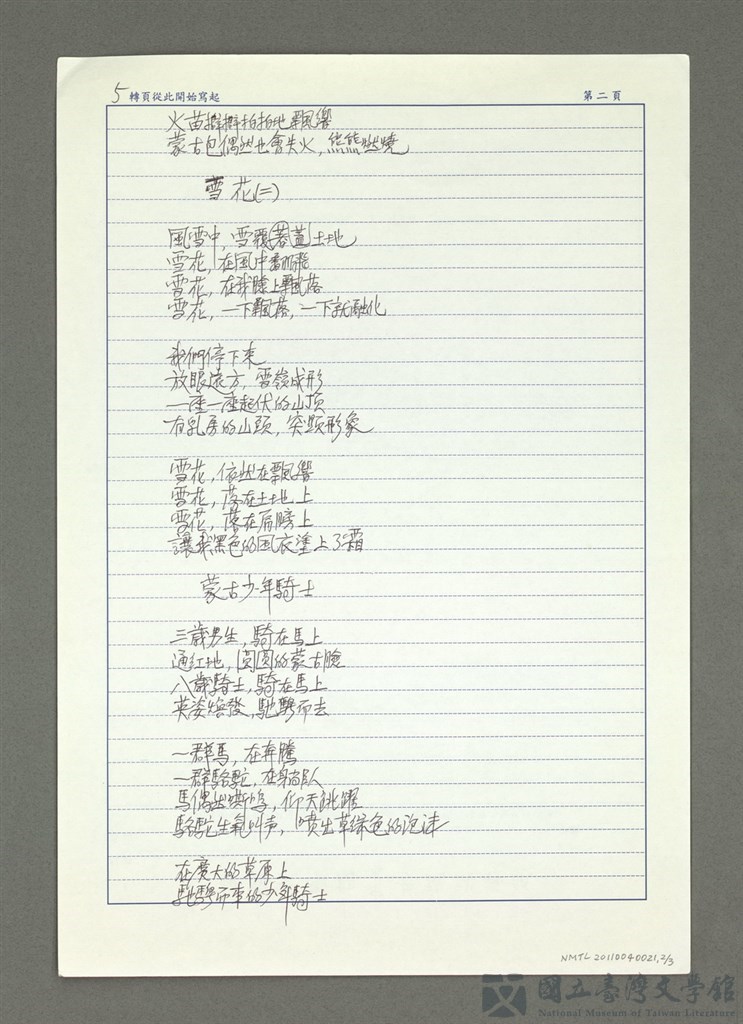 5 轉頁從此開始寫起
第二頁
火苗擗擗拍拍地飄響
蒙古包偶然也會失火,熊熊燃燒
雪花(二)
風雪中,雪覆蓋土地
雪花,在風中翻飛
雪花,在我臉上飄落
雪花,一下飄落,一下就融化
我們停下來
放眼遠方,雪嶺成形
一座一座起伏的山頂
有乳房的山頭,突顯形象
雪花,依然在飄響
雪花,落在土地上
雪花,落在肩膀上
讓我黑色的風衣塗上了霜
蒙古少年騎士
三歲男生,騎在馬上
通紅地,圓圓的蒙古臉
八歲騎士,騎在馬上
英姿煥發,馳騁而去
一群馬,在奔騰
一群駱駝,在歸隊
馬偶然嘶鳴,仰天跳躍
駱駝生氣叫声,噴出草綠色的泡沫
在廣大的草原上
馳騁而來的少年騎士
NMTL 20110040021, 2/3
國立臺灣文學館
National Museum of Taiwan Literature